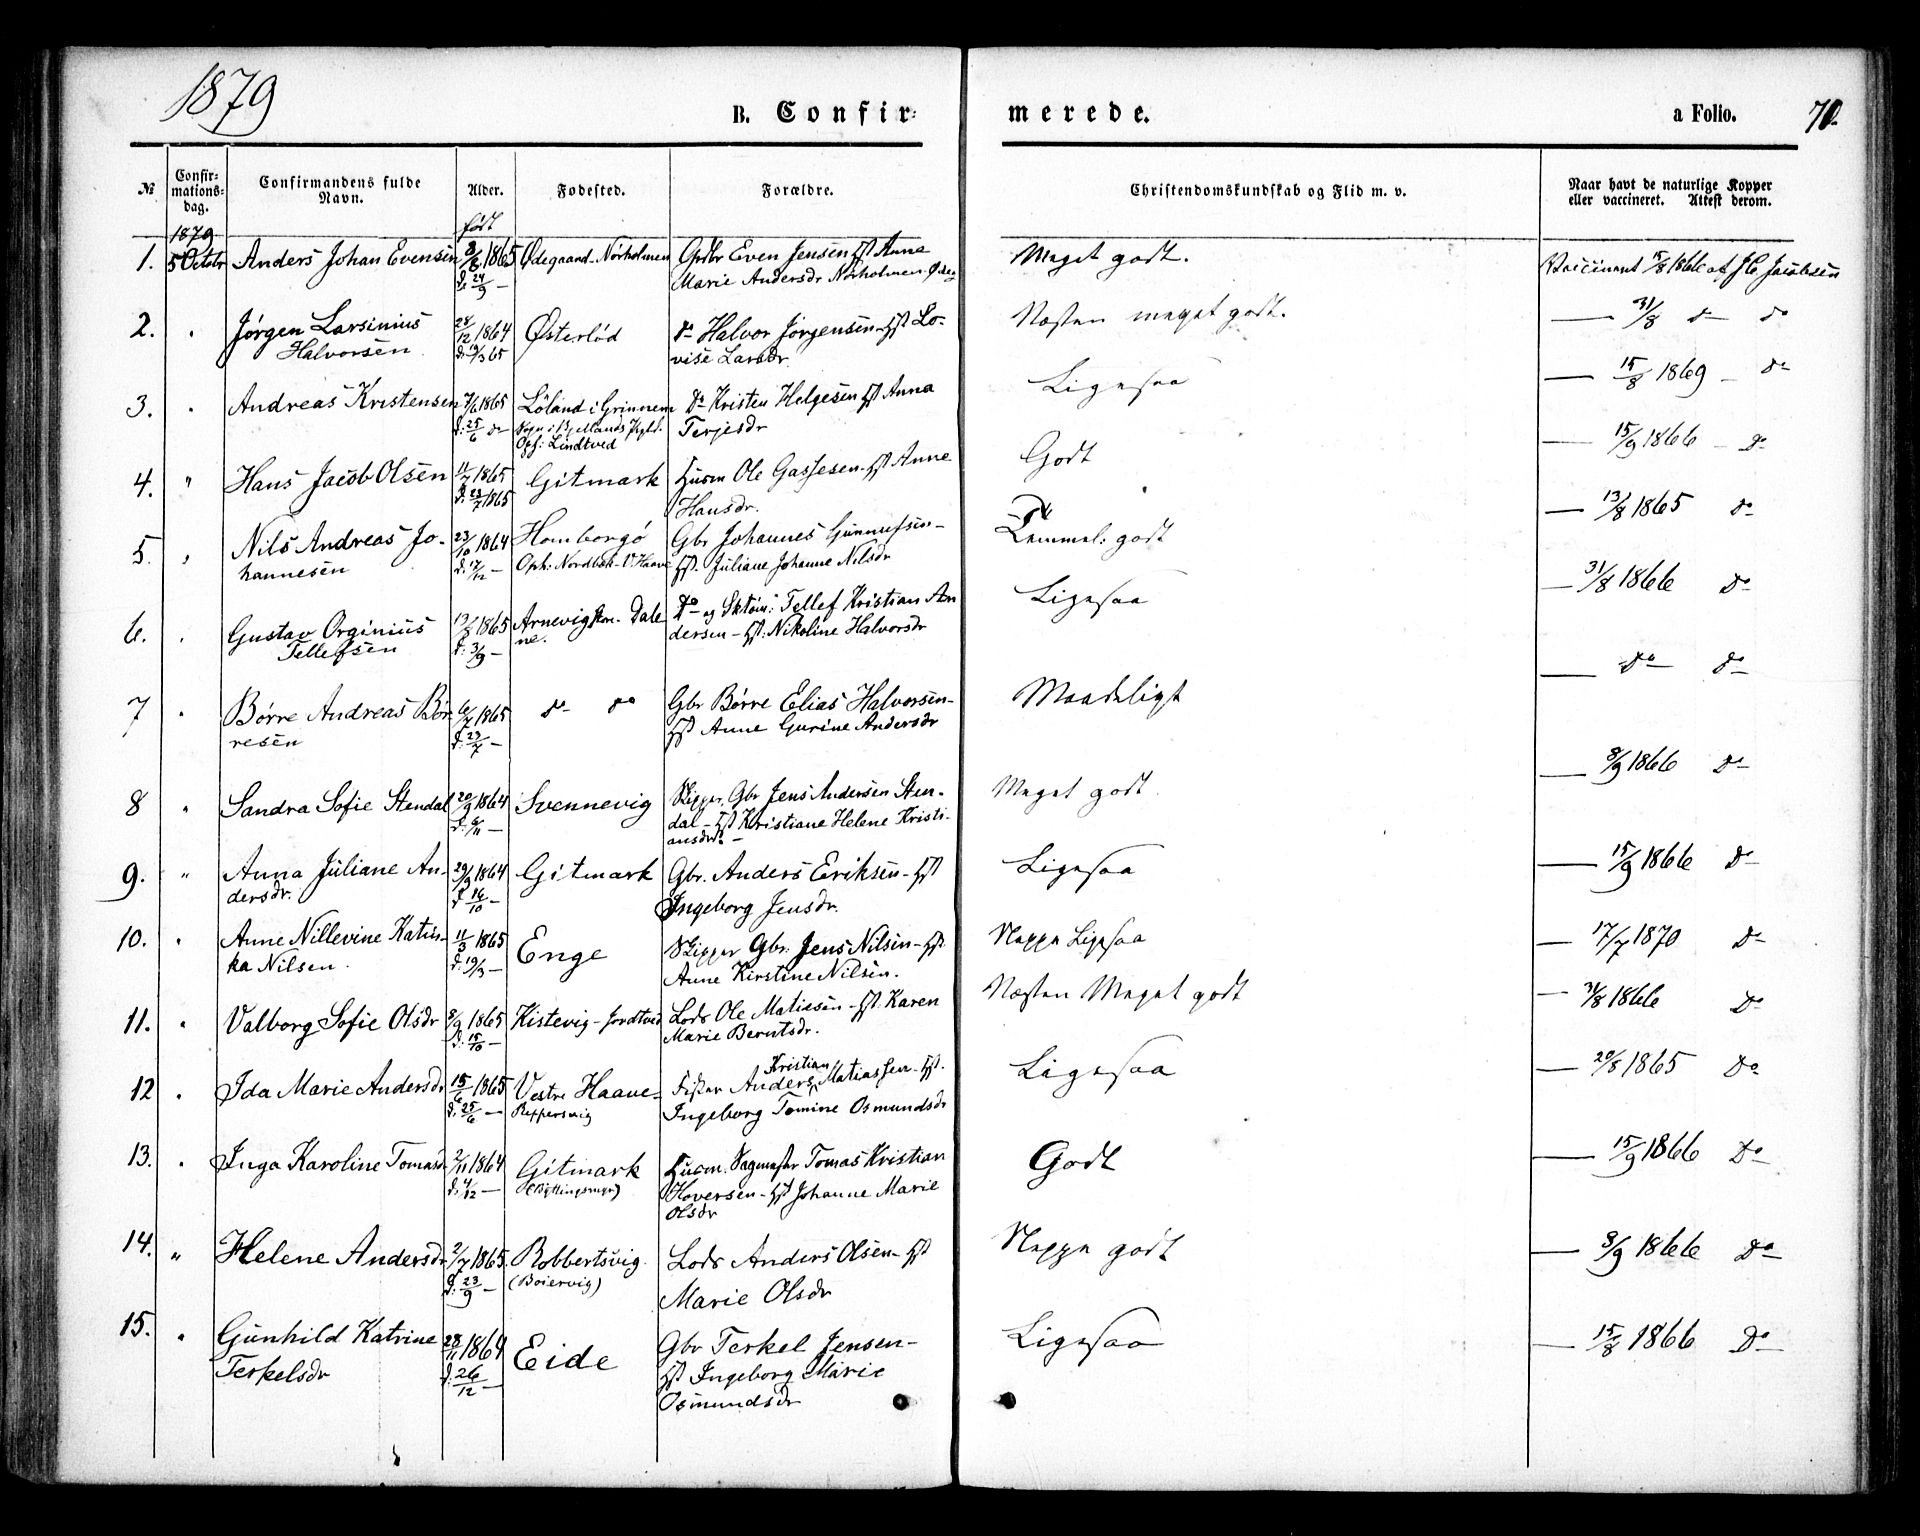 1879
B. Confir= merede. a Folio. 70.
№
Confir=
mations=
dag.
Confirmandens fulde
Navn.
Alder.
Fødested.
Forældre.
Christendomskundskab og Flid m. v.
Naar havt de naturlige Kopper
eller vaccineret. Attest derom.
1879
født
1. 5 Octobr Anders Johan Evensen 8/8 1865 Ødegaard-Nørholmen Grdbr Even Jensen Hst Anne Meget godt. Vaccineret 15/8 1866 af J C Jacobsen
d. 24/9 — Marie Andersdr Nørholmen Ødeg
2. " Jørgen Larsinius 28/12 1864 Østerlød do Halvor Jørgensen - Hst Lo- Næsten meget godt. — 31/8 do do
Halvorsen d: 19/3 65 vise Larsdr
3. " Andreas Kristensen 7/6 1865 Löland i Grinnem Do Kristen Helgesen Hst Anna Ligesaa — 15/8 1869 - do
d: 25/6 do Sogn i Bjellands Pgld. Terjesdr
Oph: Lindtved
4. " Hans Jacob Olsen 11/7 1865 Gitmark Husm Ole Gassesen - Hst Anne Godt — 15/9 1866 - Do
d. 23/7 1865 Hansdr.
5. " Nils Andreas Jo- 23/10 1864 Homborgö Gbr Johannes Gunnufsen- Temmel: godt — 13/8 1865 do
hannesen d. 17/12 — Oph: Nordbek - V. Haave Hst. Juliane Johanne Nilsdr
6. " Gustav Orginius 13/8 1865 Arnevig store Dale Do og Sktøm: Tellef Kristian An Ligesaa — 31/8 1866 Do
Tellefsen d: 3/9 — ne. dersen - Hst: Nikoline Halvorsdr
7 " Børre Andreas Bør 6/7 1865 do do Gbr Børre Elias Halvorsen- Maadeligt — do do
resen d: 23/7 — Hst Anne Gurine Andersdr
8 " Sandra Sofie Stendal 20/9 1864 Svennevig Skipper, Gbr Jens Andersen Sten- Meget godt. — 8/9 1866 Do
d: 6/11 — dal - Hst Kristiane Helene Kristi-
ansdr. -
9. " Anna Juliane An- 29/9 1864 Gitmark Gbr. Anders Eriksen - Hst Ligesaa — 15/9 1866 Do
dersdr. d 16/10 — Ingeborg Jensdr.
10. " Anne Nillevine Katin- 11/3 1865 Enge Skipper Gbr. Jens Nilsen - Hst. Neppe Ligesaa — 17/7 1870 Do
ka Nilsen. d. 19/3 — Anne Kirstine Nilsen.
11. " Valborg Sofie Olsdr 8/9 1865 Kistevig - Jordtved Lods Ole Matiesen - Hst. Karen Næsten Meget godt — 31/8 1866 Do
d: 15/10 — Marie Berntsdr.
Kristian
12 " Ida Marie Andersdr 15/6 1865 Vestre Haave- Fisker Anders Matiassen - Hst. Ligesaa — 20/8 1865 Do
d: 25/6 — Reppersvig Ingeborg Tomine Osmundsdr
13. " Inga Karoline Tomasdr 2/11 1864 Gitmark Husm. Sagmester Tomas Kristian Godt — 15/9 1866 Do
d: 4/12 — Hoversen - Hst Johanne Marie
Olsdr
14. " Helene Andersdr 2/7 1865 Robbertsvig. Lods Anders Olsen - Hst Neppe godt — 8/9 1866 Do
d: 23/9 — (Boiervig) Marie Olsdr
15. " Gunhild Katrine 28/11 1864 Eide Gbr Terkel Jensen- Ligesaa — 15/8 1866 Do
Terkelsdr d: 26/12 — Hst Ingeborg Marie
Osmundsdr